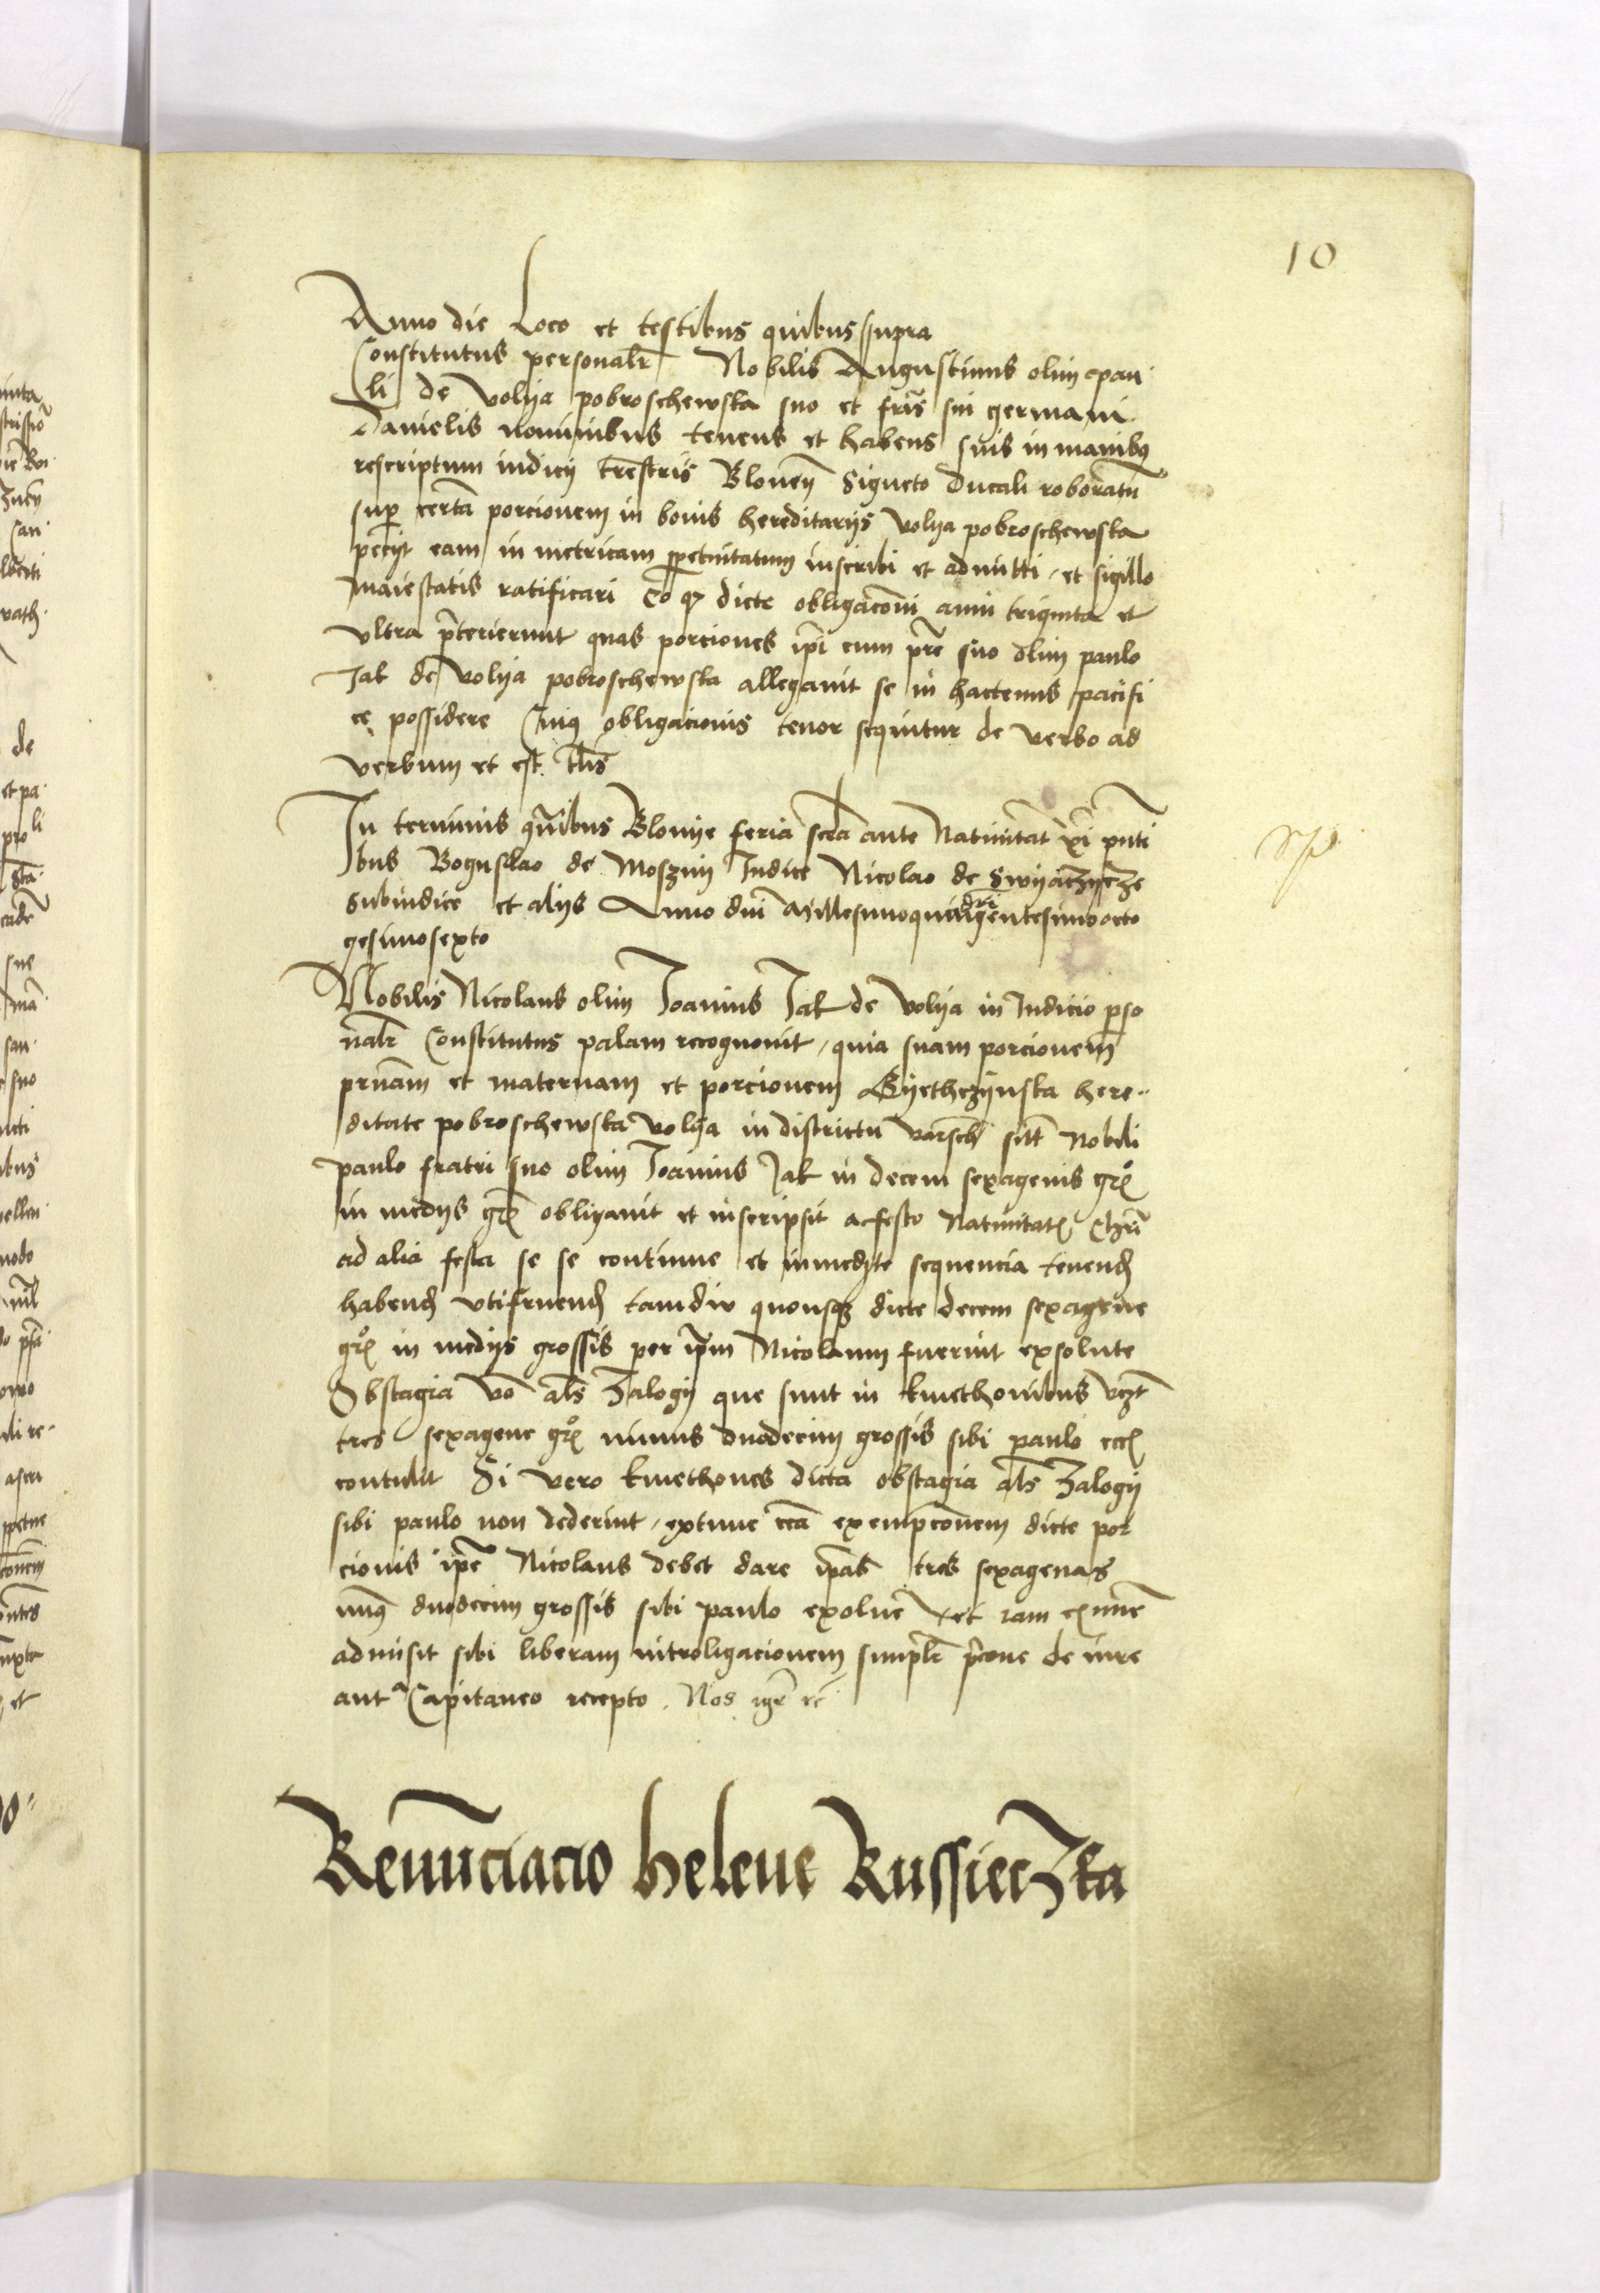 10
Anno die Loco et testibus quibus supra
Constitutus personalr̄ Nobilis Augustinus olim pau
li de Volya pobroschewska suo et fris̄ sui germani
Danielis nominibus tenens et habens suis in manibꝯ
rescriptum iudicij tr̄estris Blonen̄ Signeto Ducali roboratū
suꝑ certā porcionem in bonis hereditarijs Volya pobroschewska
pecijt eam in metricam ꝑpetuitatum inscribi et admitti, et sigillo
maiestatis ratificari Eo ꝙ dicte obligacōni anni triginta et
vltra p̄terierunt quas porciones ip̄i cum pr̄e suo olim paulo
Jak de Volya pobroschewska allegauit se in hactenus pacifi
ce possidere Cuiꝯ obligacionis tenor sequitur de verbo ad
verbum et est tl̄is
In terminis gn̄ibus Blonye feria scd̄a ante Natiuitat̄ xp̄i pn̄ti
bus Boguslao de Moszny Judice Nicolao de Swyaczycze
Subiudice et alijs Anno dn̄i Millesimoquadrīgentesimoocto
gesimosexto
Nobilis Nicolaus olim Joannis Jak de Volya in Judicio ꝑso
nalr̄ Constitutus palam recognouit, quia suam porcionem
prn̄am et maternam et porcionem Gyethczynska here
ditate pobroschewska Volya in districtu Varsch̄ sitt̄ Nobili
paulo fratri suo olim Joannis Jak in decem sexagenis gr̄
in medijs gr̄ obligauit et inscripsit a festo Natiuitat̄ Chrī
ad alia festa se se continue et inmedyte sequencia tenend̄
habend̄ vtifruend̄ tamdiv quousqꝫ dicte decem sexagene
gr̄ in medijs grossis per ip̄m Nicolaum fuerint exsolute
Obstagia vō al̄s Zalogy que sunt in kmethonibus vcꝫt
tres sexagene gr̄ minus duodecim grossis sibi paulo ecc̄
contulit Si vero kmethones dicta obstagia al̄s Zalogy
sibi paulo non dederint, extunc cc̄a exempcōnem dicte por
cionis ip̄e Nicolaus debet dare ip̄as tres sexagenas
minꝯ duodecim grossis sibi paulo exoluer̄ et iam eximē
admisit sibi liberam introligacionem simplr̄ de iure
Capitaneo recepto. Nos igr̄ ec̄
Renūciacio helene Russieczka